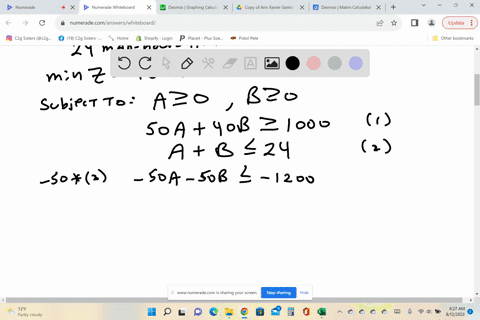 Numerade
Numerade Whiteboard
Desmos | Graphing Calculator
Copy of Ann Xavier Gantert
Desmos | Matrix Calculator
numerade.com/answers/whiteboard/
Update
C2g Sisters (@c2g...
(18) C2g Sisters -...
Shopify
Login - Propel
Placeit - Plus Size...
Pistol Pete
Other bookmarks
min Z
Subject To: A ≥ 0 , B ≥ 0
50A + 40B ≥ 1000 (1)
A + B ≤ 24 (2)
-50*(2) -50A - 50B ≤ -1200
www.numerade.com is sharing your screen.
Stop sharing
Hide
72°F
Partly cloudy
6:27 AM
8/12/2022